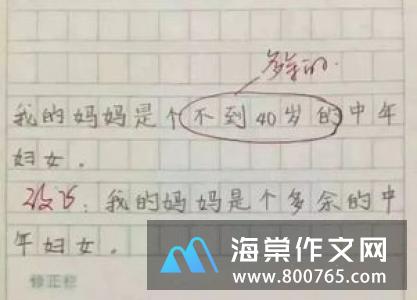 多余的.
我的妈妈是个不到40岁的中年
妇女.
改为:我的妈妈是个多余的中
年妇女.
海棠作文网
www.800765.com
修正栏